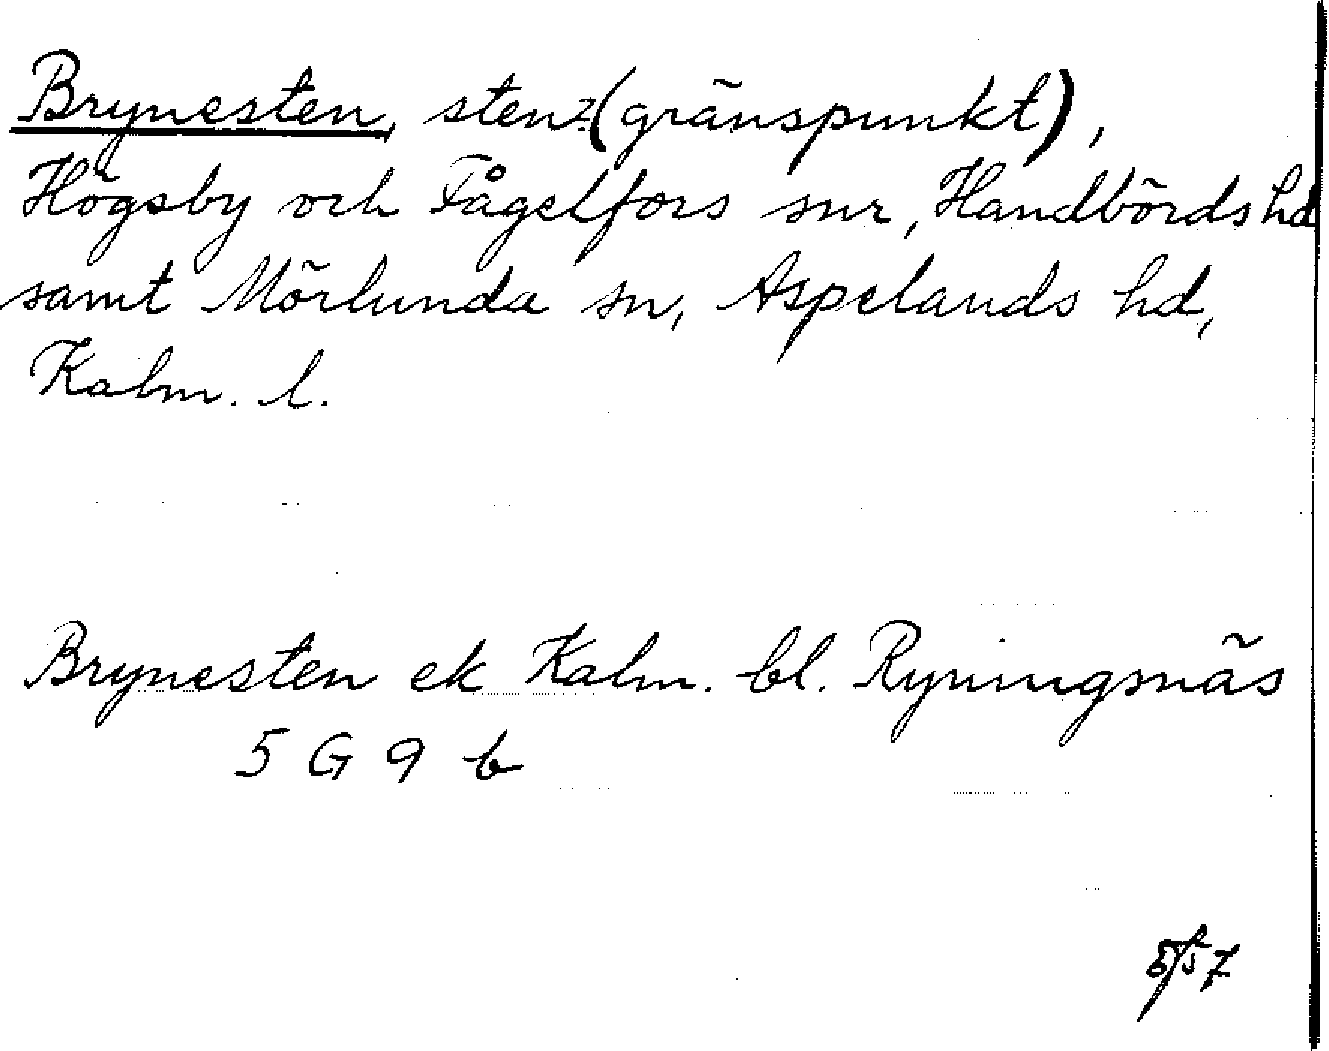 Brynesten, sten? (gränspunkt),
Högsby och Fågelfors snr, Handbörds hd
samt Mörlunda sn, Aspelands hd,
Kalm. l.
Brynesten ek Kalm. bl. Ryningsnäs
5 G 9 b